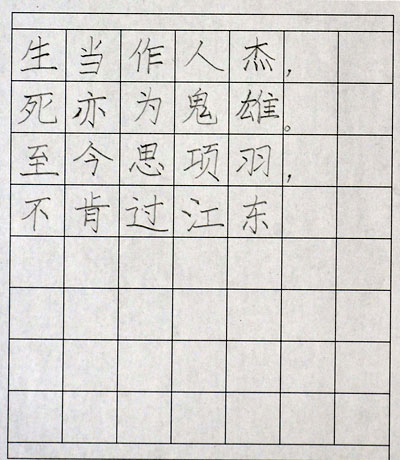 生当作人杰，
死亦为鬼雄。
至今思项羽，
不肯过江东